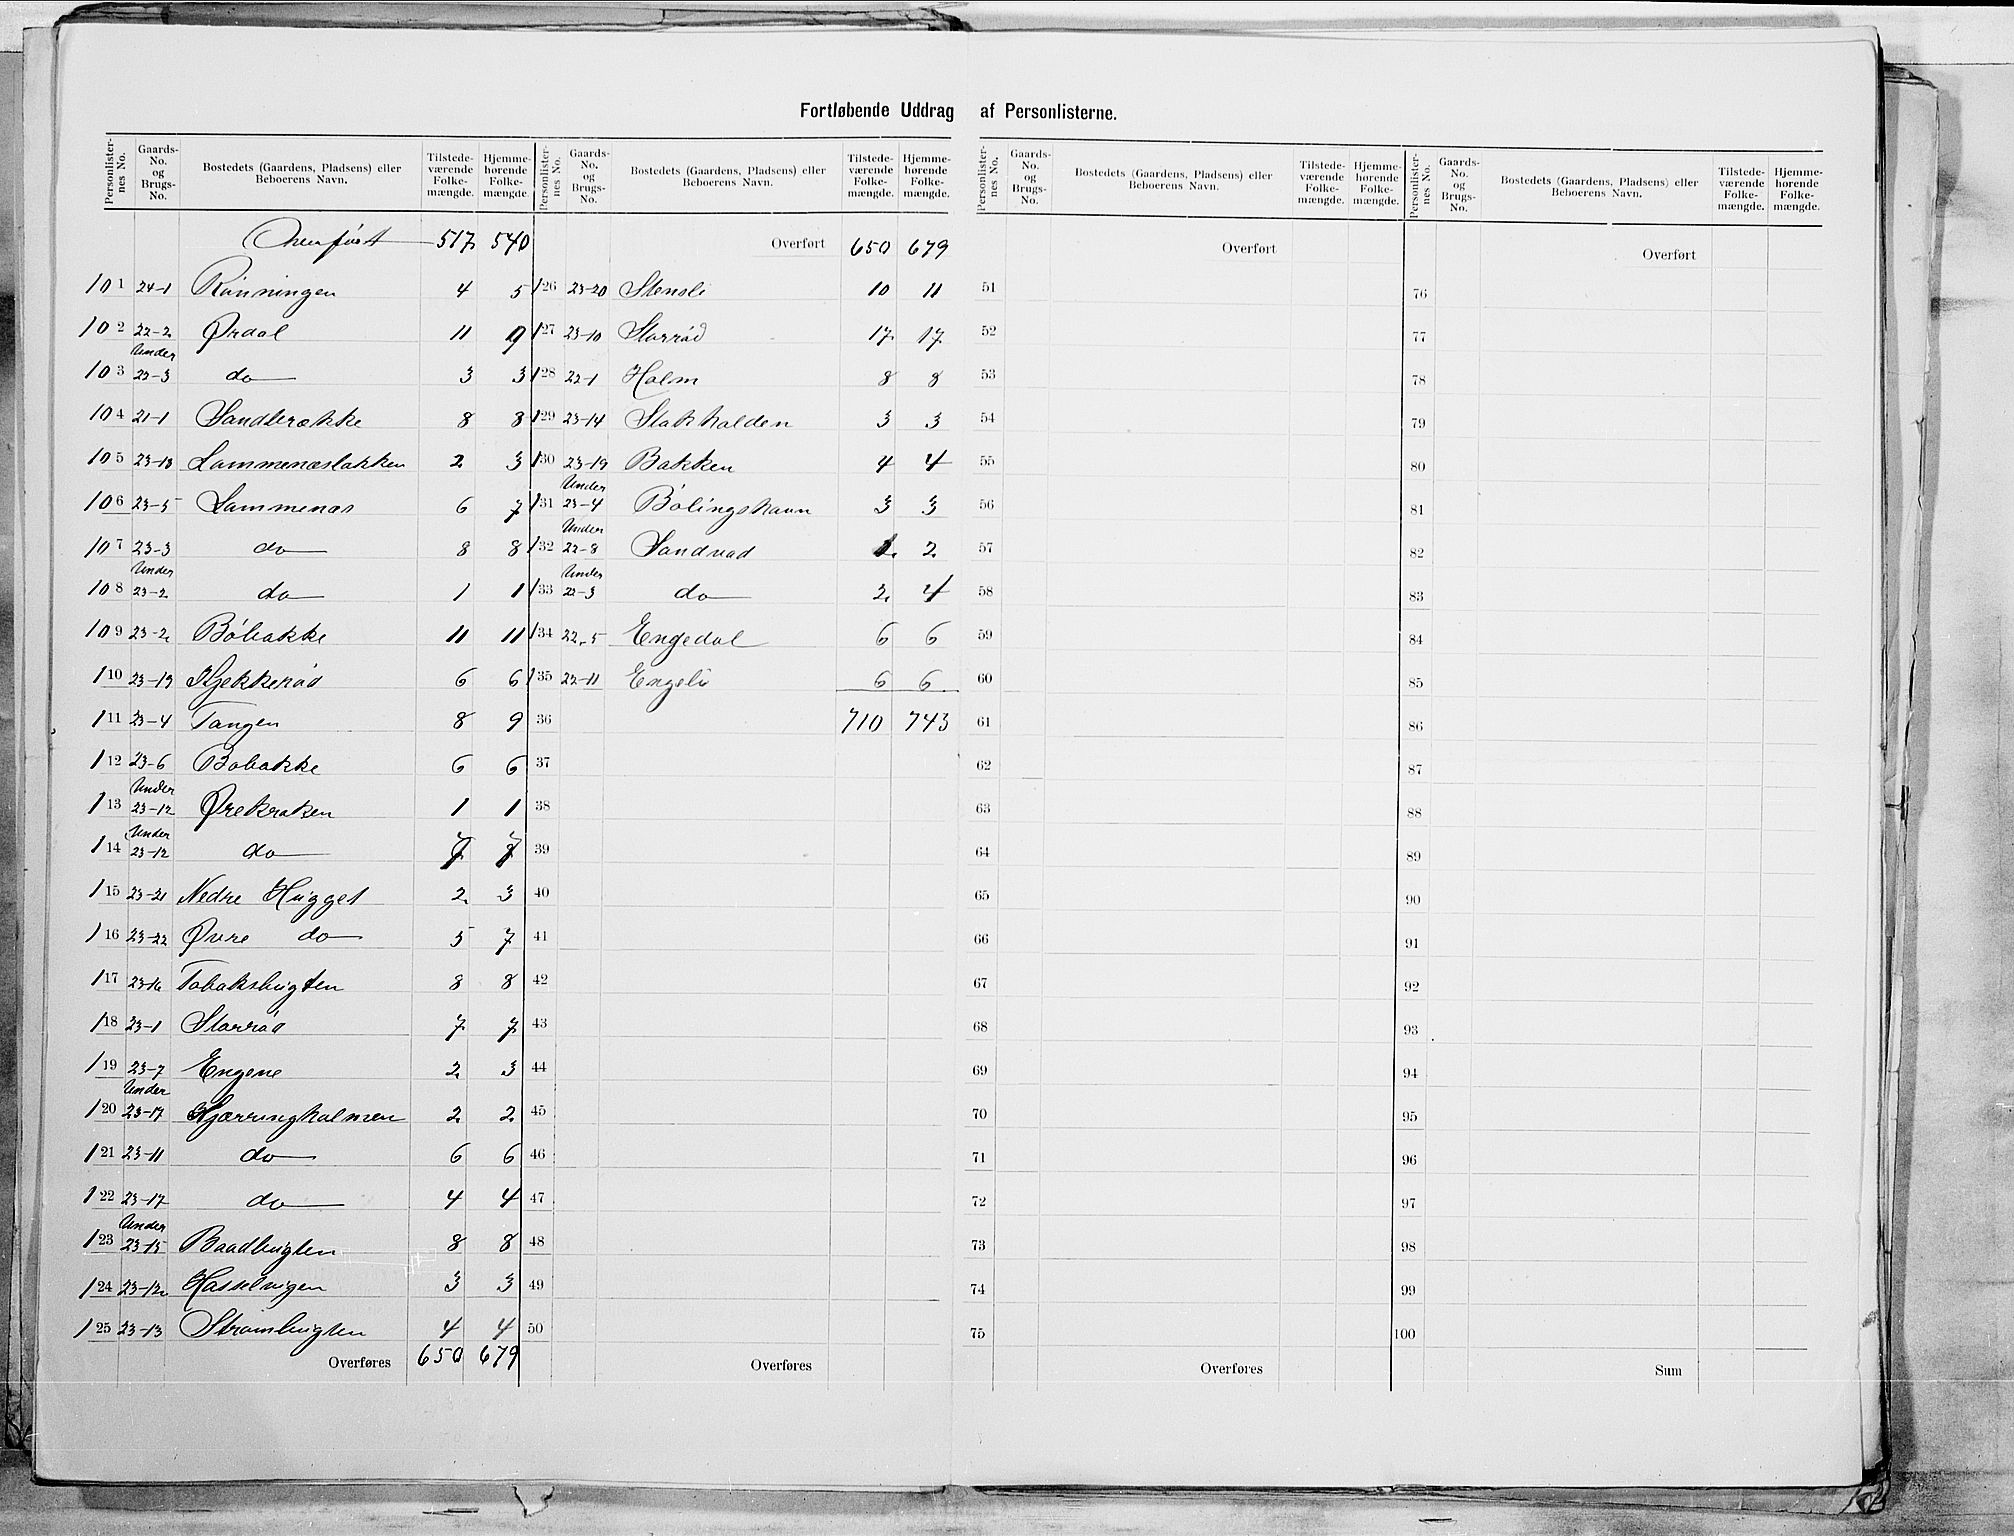 Fortløbende Uddrag af Personlisterne.
Personlisternes No. Gaards-No. og Brugs-No. Bostedets (Gaardens, Pladsens) eller Beboerens Navn. Tilstedeværende Folkemængde. Hjemmehørende Folkemængde.
Overført 517 540
101 24-1 Rønningen 4 5
102 22-2 Ørdal 11 9
103 Under 22-3 do 3 3
104 21-1 Sandbrække 8 8
105 23-18 Lammenæsbakken 2 3
106 23-5 Lammenæs 6 7
107 23-3 do 8 8
108 Under 23-2 do 1 1
109 23-2 Bøbakke 11 11
110 23-19 Kjekkerød 6 6
111 23-4 Tangen 8 9
112 23-6 Bøbakke 6 6
113 Under 23-12 Ørekroken 1 1
114 Under 23-12 do 7 7
115 23-21 Nedre Hugget 2 3
116 23-22 Øvre do 5 7
117 23-16 Tobaksbugten 8 8
118 23-1 Storrød 7 7
119 23-7 Engene 2 3
120 Under 23-17 Kjærringholmen 2 2
121 23-11 do 6 6
122 23-17 do 4 4
123 Under 23-15 Baadbugten 8 8
124 23-12 Hasselvigen 3 3
125 23-13 Strømbugten 4 4
Overføres 650 679
Personlisternes No. Gaards-No. og Brugs-No. Bostedets (Gaardens, Pladsens) eller Beboerens Navn. Tilstedeværende Folkemængde. Hjemmehørende Folkemængde.
Overført 650 679
126 23-20 Stensli 10 11
127 23-10 Storrød 17 17
128 22-1 Holm 8 8
129 23-14 Stokkholden 3 3
130 23-19 Bakken 4 4
131 Under 23-4 Bølingshavn 3 3
132 Under 22-8 Sandvad 1 2
133 Under 22-3 do 2 4
134 22-5 Engedal 6 6
135 22-11 Engeli 6 6
36 710 743
37
38
39
40
41
42
43
44
45
46
47
48
49
50
Overføres
Personlisternes No. Gaards-No. og Brugs-No. Bostedets (Gaardens, Pladsens) eller Beboerens Navn. Tilstedeværende Folkemængde. Hjemmehørende Folkemængde.
Overført
51
52
53
54
55
56
57
58
59
60
61
62
63
64
65
66
67
68
69
70
71
72
73
74
75
Overføres
Personlisternes No. Gaards-No. og Brugs-No. Bostedets (Gaardens, Pladsens) eller Beboerens Navn. Tilstedeværende Folkemængde. Hjemmehørende Folkemængde.
Overført
76
77
78
79
80
81
82
83
84
85
86
87
88
89
90
91
92
93
94
95
96
97
98
99
100
Sum